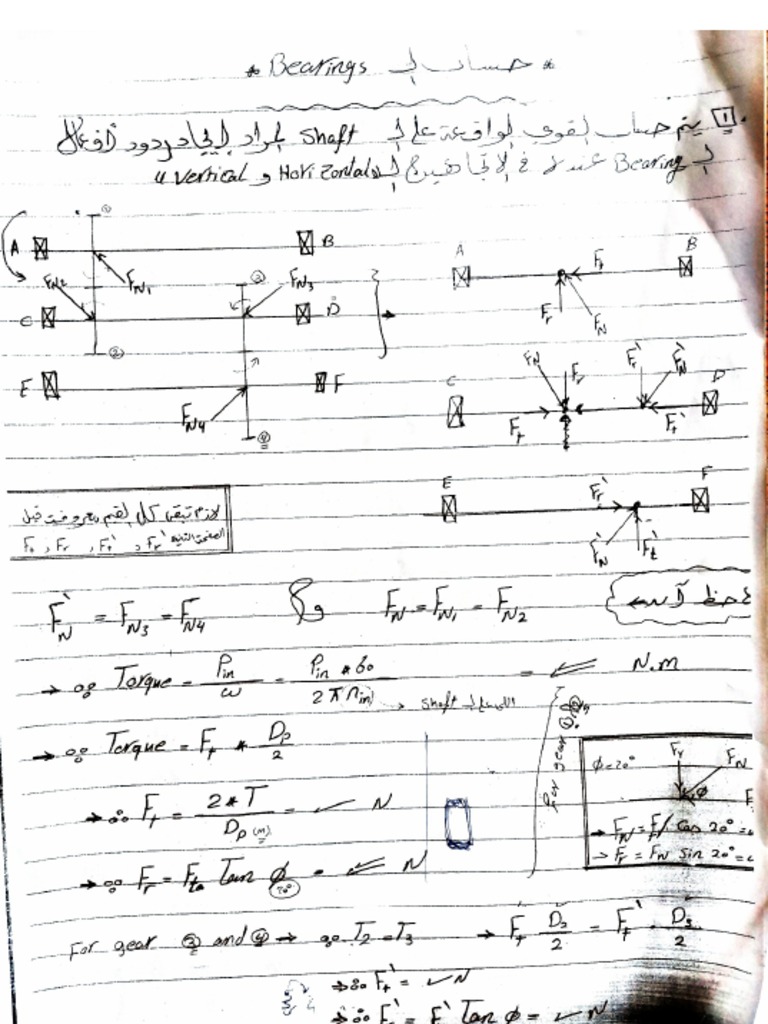 * حساب الـ Bearings *
1 يتم حساب القوى الواقعة على الـ Shaft المراد إيجاد ردود أفعال
الـ Bearing عنده في الاتجاهين الـ Horizontal و Vertical
A B 1
FN2 FN1 3 FN3
C D 2
E F
FN4 4
A B Ft
Fr FN
FN Fr Fr' FN'
C D Ft Ft'
E F Fr'
FN' Ft'
لازم تبقى كل القيم معروفة قبل
Ft , Fr , Ft' , Fr'
لاحظ أن
FN' = FN3 = FN4 و FN = FN1 = FN2
→ ∵ Torque = Pin / ω = Pin * 60 / 2π nin = ✓ N.m
Shaft
→ ∵ Torque = Ft * Dp / 2
For gear
→ ∴ Ft = 2 * T / Dp (m) = ✓ N
→ ∵ Fr = Ft Tan φ 20° = ✓ N
φ = 20° Fr FN
φ
→ FN = Ft / Cos 20° =
→ Fr = FN Sin 20° =
For gear 3 and 4 → ∵ T2 = T3 → Ft D2 / 2 = Ft' D3 / 2
→ ∴ Ft' = ✓ N
→ ∴ Fr' = Ft' Tan φ = ✓ N